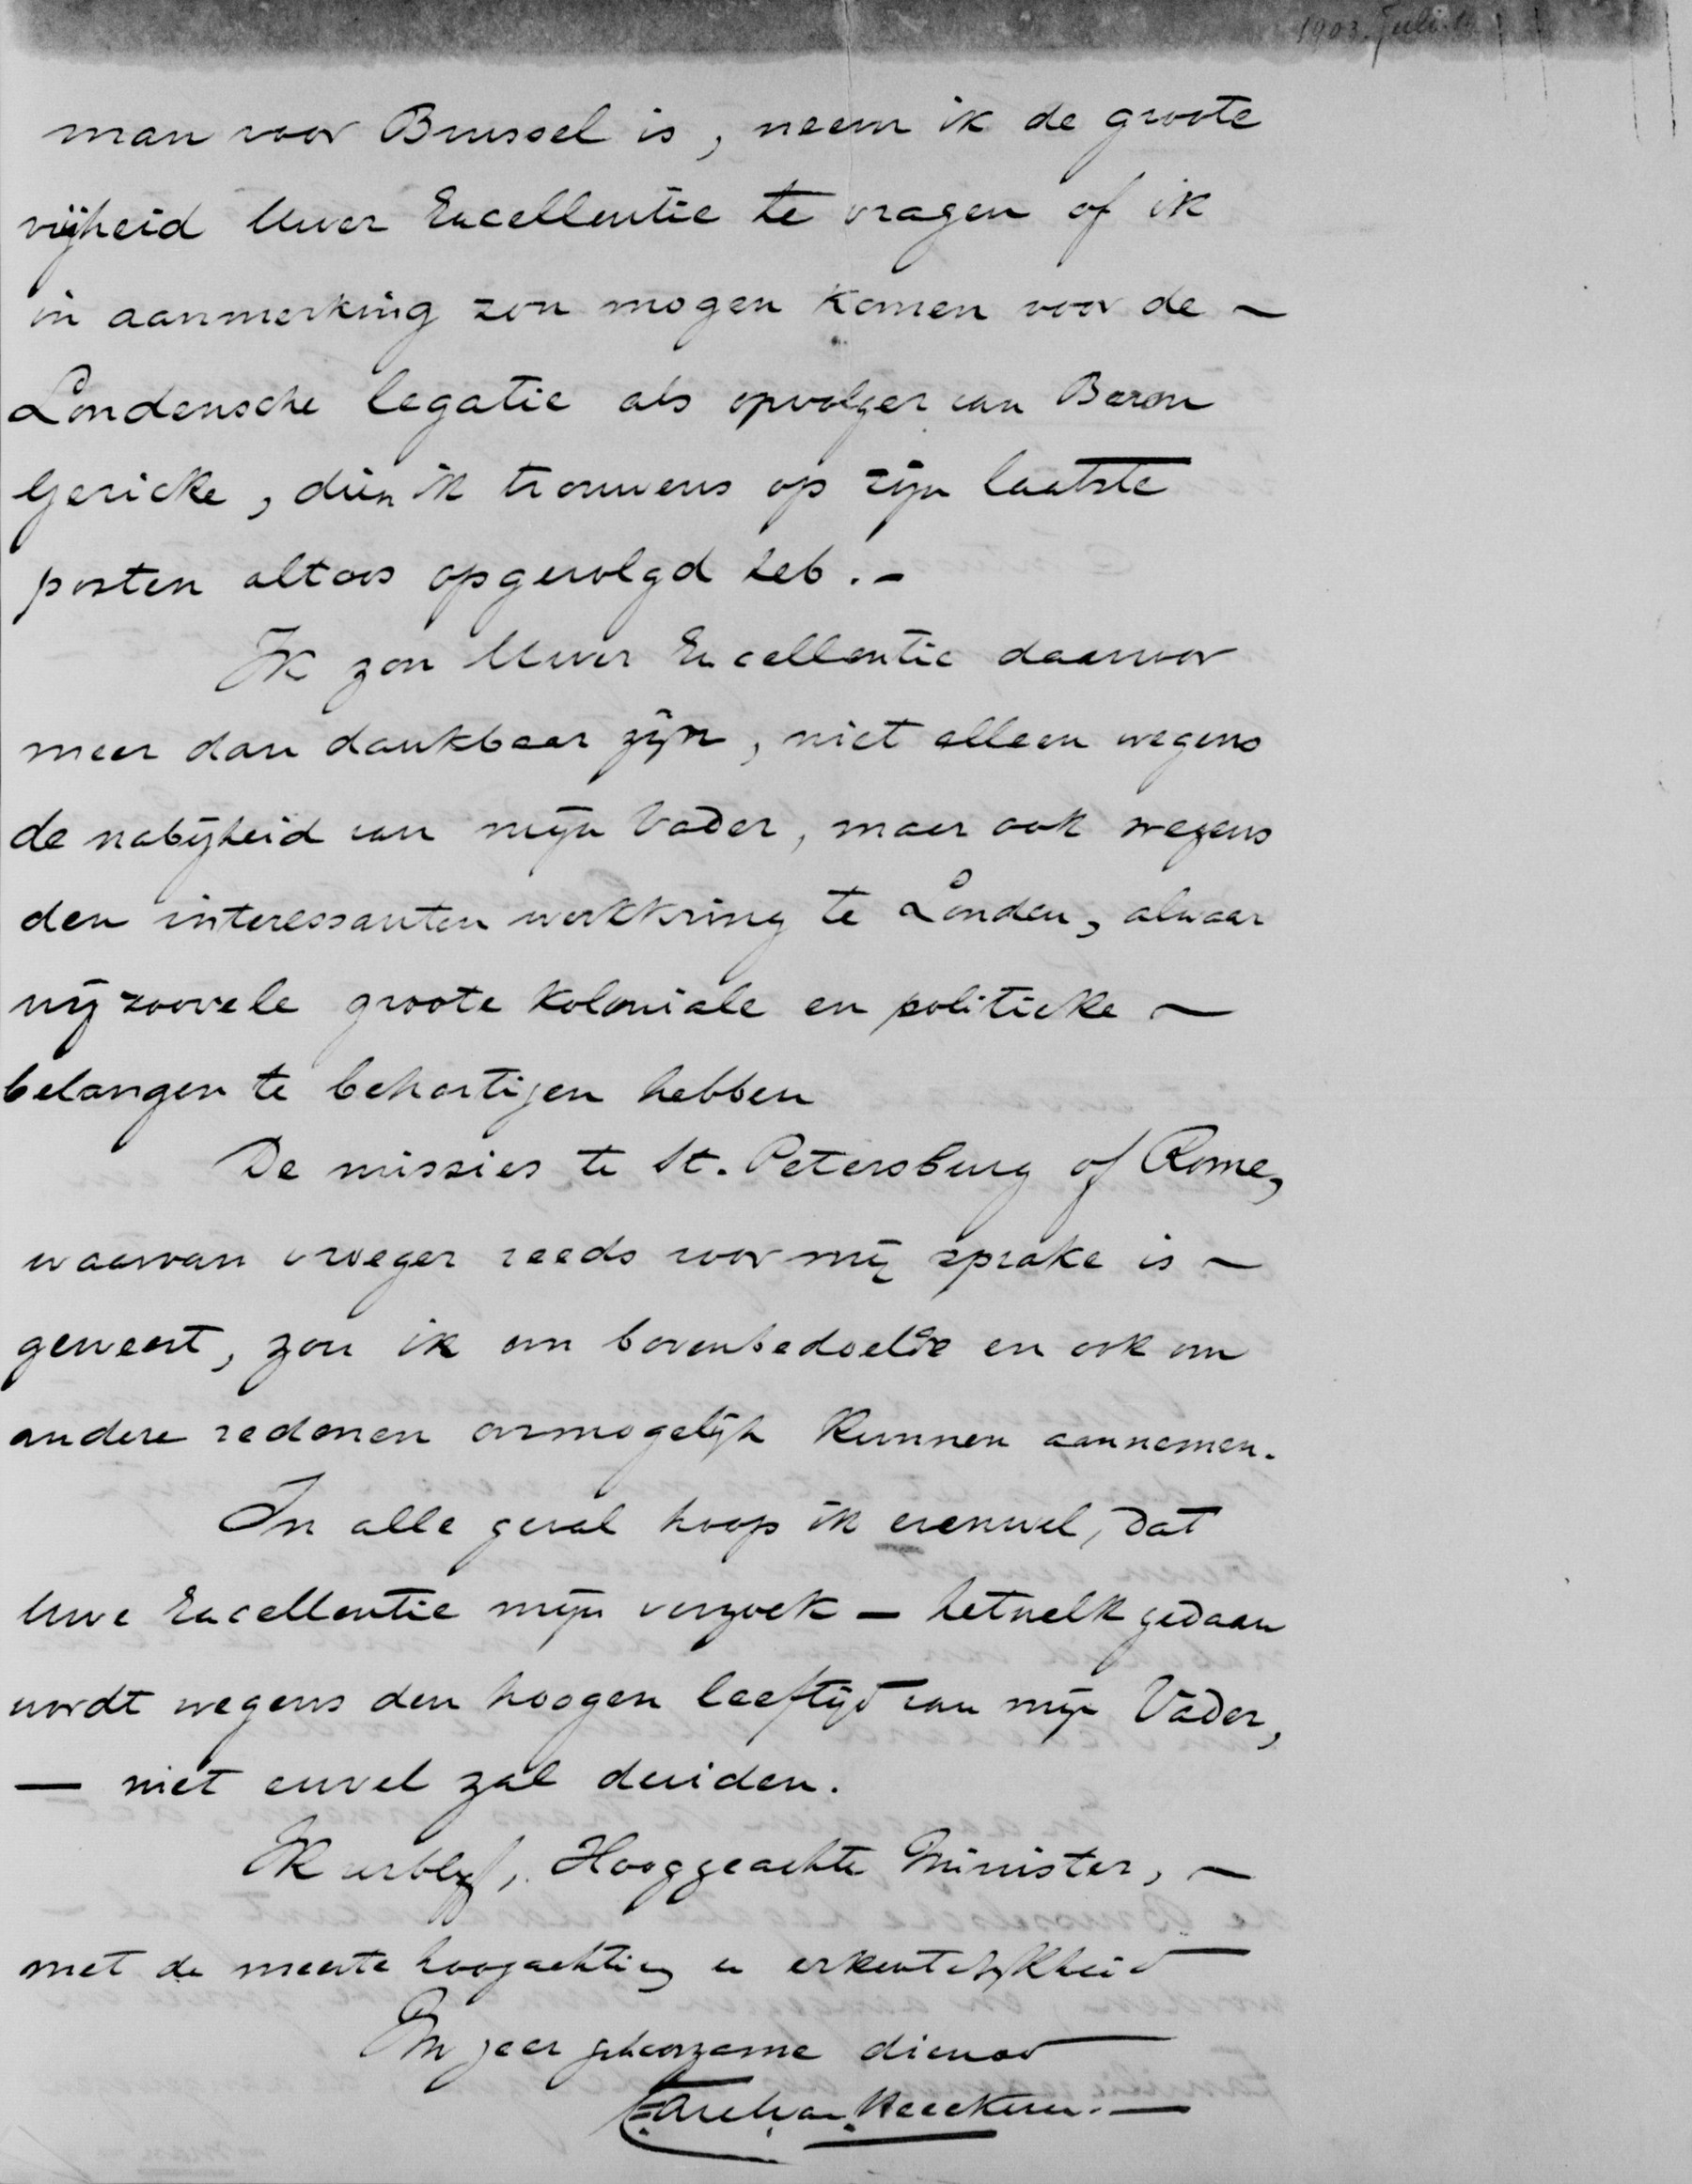 1903. Juli
man voor Brussel is, neem ik de groote
vrijheid Uwer Excellentie te vragen of ik
in aanmerking zou mogen komen voor de ~
Londensche legatie als opvolger van Baron
Gericke, dien ik trouwens op zijn laatste
posten altoos opgevolgd heb. -
Ik zou Uwer Excellentie daarvoor
meer dan dankbaar zijn, niet alleen wegens
de nabijheid van mijn Vader, maar ook wegens
den interessanten werkkring te Londen, alwaar
wij zoovele groote koloniale en politieke ~
belangen te behartigen hebben
De missies te St. Petersburg of Rome,
waarvan vroeger reeds voor mij sprake is ~
geweest, zou ik om bovenbedoelde en ook om
andere redenen onmogelijk kunnen aannemen.
In alle geval hoop ik evenwel, dat
Uwe Excellentie mijn verzoek — hetwelk gedaan
wordt wegens den hoogen leeftijd van mijn Vader,
— niet euvel zal duiden.
Ik verblijf, Hooggeachte Minister, ~
met de meeste hoogachting en erkentelijkheid
Uw zeer gehoorzame dienaar
van Heeckeren. —